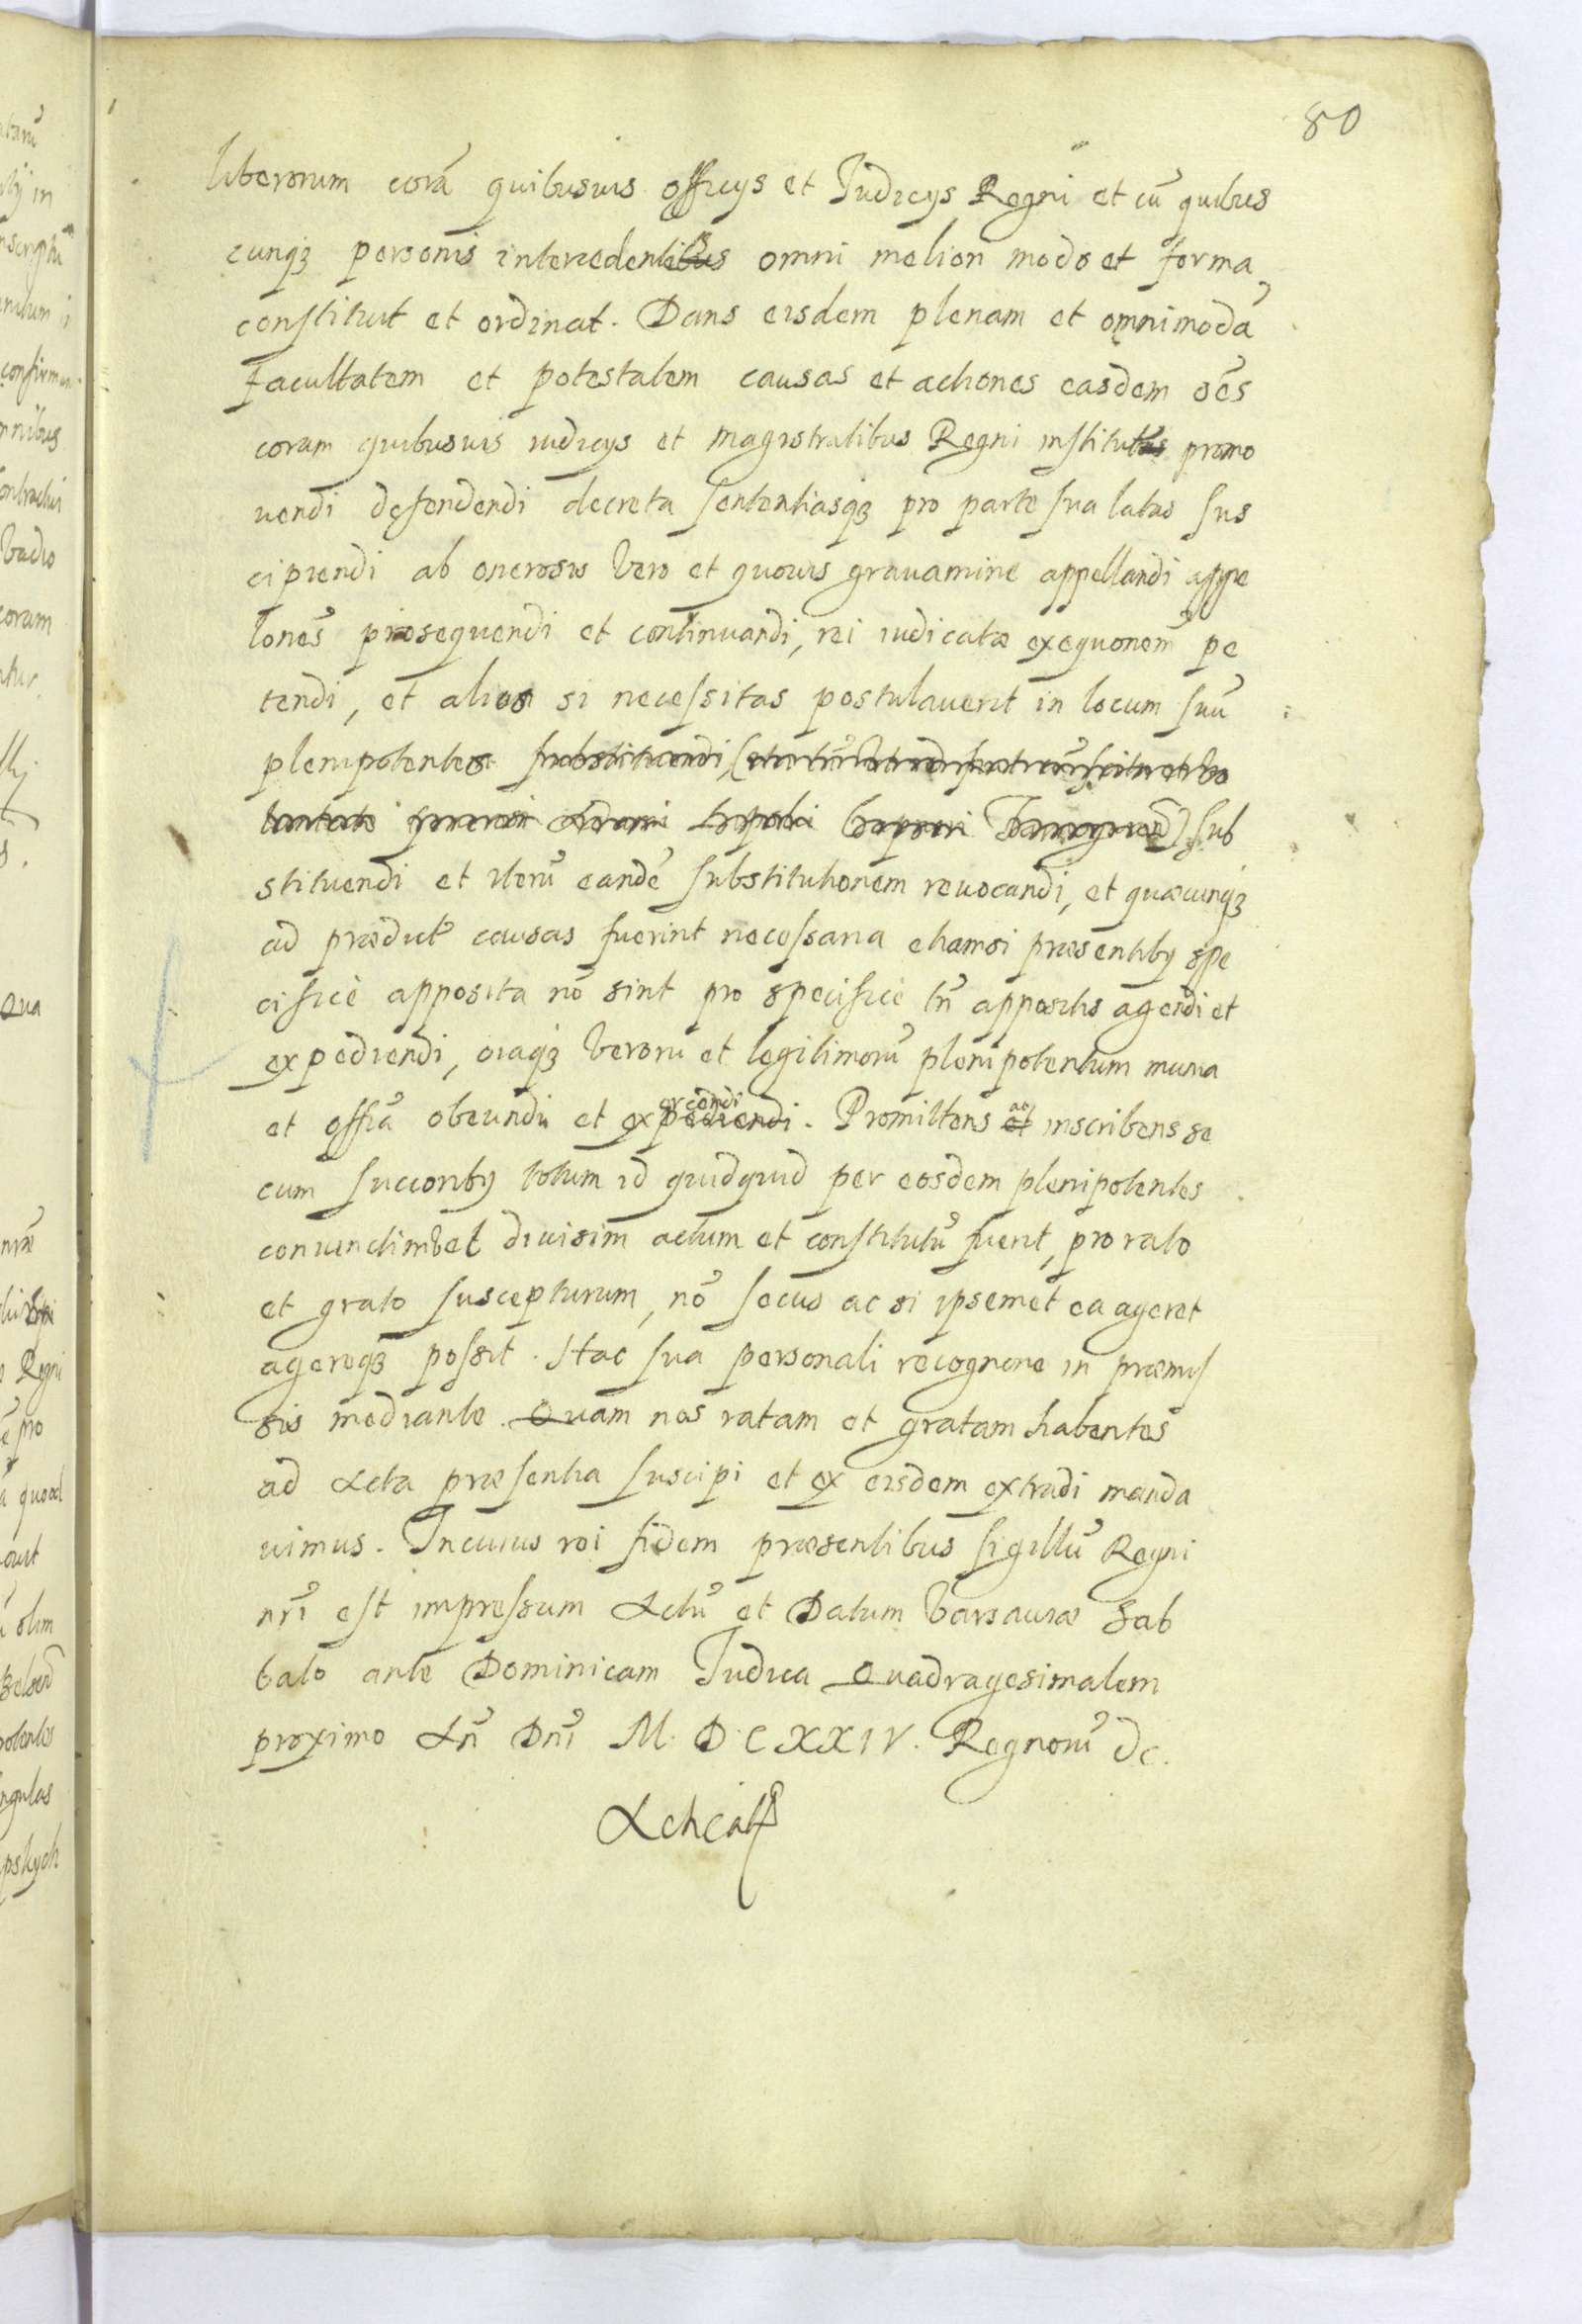 80
liberorum corã quibusuis officÿs et Iudicÿs Regni et cũ quibus
cunqʒ personis intercedentibus omni meliori modo et forma
constituit et ordinat. Dans eisdem plenam et omnimodã
facultatem et potestatem causas et actiones easdem oẽs
coram quibusuis iudicÿs et magistratibus Regni institutas promo
uendi defendendi decreta sententiasqʒ pro parte sua latas sus
cipiendi ab onerosis vero et quouis grauamine appellandi appe
lonẽs prosequendi et continuandi, rei iudicatæ exequonem̃ pe
tendi, et alios si necessitas postulauerit in locum suũ
plenipotentes substituendi, sub
stituendi et iterũ eandẽ substitutionem reuocandi, et quæcunqʒ
ad prædict̃ causas fuerint necessaria etiamsi præsentibꝰ spe
cificè apposita nõ sint pro specificè tñ appositis agendi et
expediendi, oiaqʒ verorũ et legitimorũ plenipotentum munia
et offiã obeundi et expediendi exercendi. Promittens et ac inscribens se
cum succoribꝰ totum id quidquid per eosdem plenipotentes
coniunctim vel diuisim actum et constitutũ fuerit, pro rato
et grato suscepturum, nõ secus ac si ipsemet ea ageret
agereqʒ possit. Hac sua personali recognone in præmis
sis mediante. Quam nos ratam et gratam habentes
ad Acta præsentia suscipi et ex eisdem extradi manda
uimus. In cuius rei fidem præsentibus sigillũ Regni
nrĩ est impressum Actũ et Datum Varsauiæ Sab
bato ante Dominicam Iudica Quadragesimalem
proximo Añ Dnĩ M. D C XXIV. Regnorũ &c.